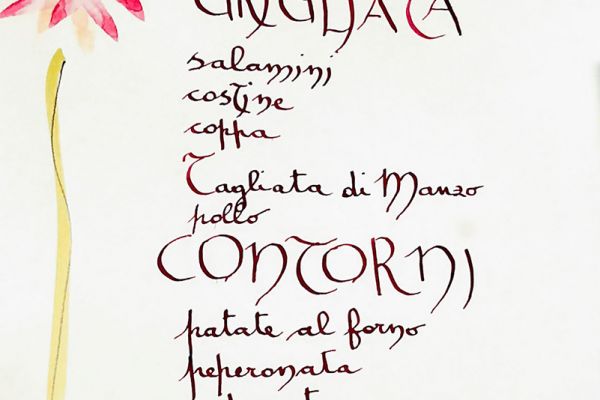 GRIGLIATA
salamini
costine
coppa
Tagliata di Manzo
pollo
CONTORNI
patate al forno
peperonata